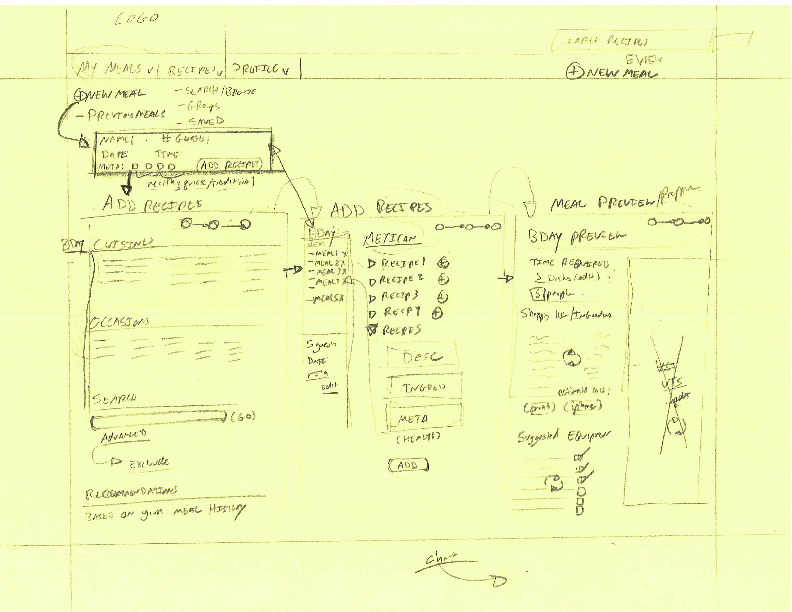 LOGO
SEARCH RECIPES
MY MEALS v | RECIPES v | PROFILE v |
EVENT
+ NEW MEAL
+ NEW MEAL
- SEARCH/BROWSE
- PREVIOUS MEALS
- GROUPS
- SAVED
NAME: # GUESTS:
DATE TIME
META: ADD RECIPES
healthy quick/traditional
ADD RECIPES
BDAY
CUISINES
OCCASIONS
SEARCH
(GO)
ADVANCED
EXCLUDE
RECOMMENDATIONS
BASED ON YOUR MEAL HISTORY
ADD RECIPES
BDAY
- MEAL 1 X
- MEAL 2 X
- MEAL 3 X
- MEAL 4 X
- MEAL 5 X
5 guests
DATE
META
Edit
MEXICAN
RECIPE 1 +
RECIPE 2 +
RECIP 3 +
RECP 4 +
RECIPE 5
DESC
INGRED
META
(HEALTH)
ADD
MEAL PREVIEW/prepare
BDAY PREVIEW
TIME REQUIRED
5 Dishes (edit)
5 people
Shopping list/Ingredients
estimated cost:
(print) (iphone)
Suggested Equipment